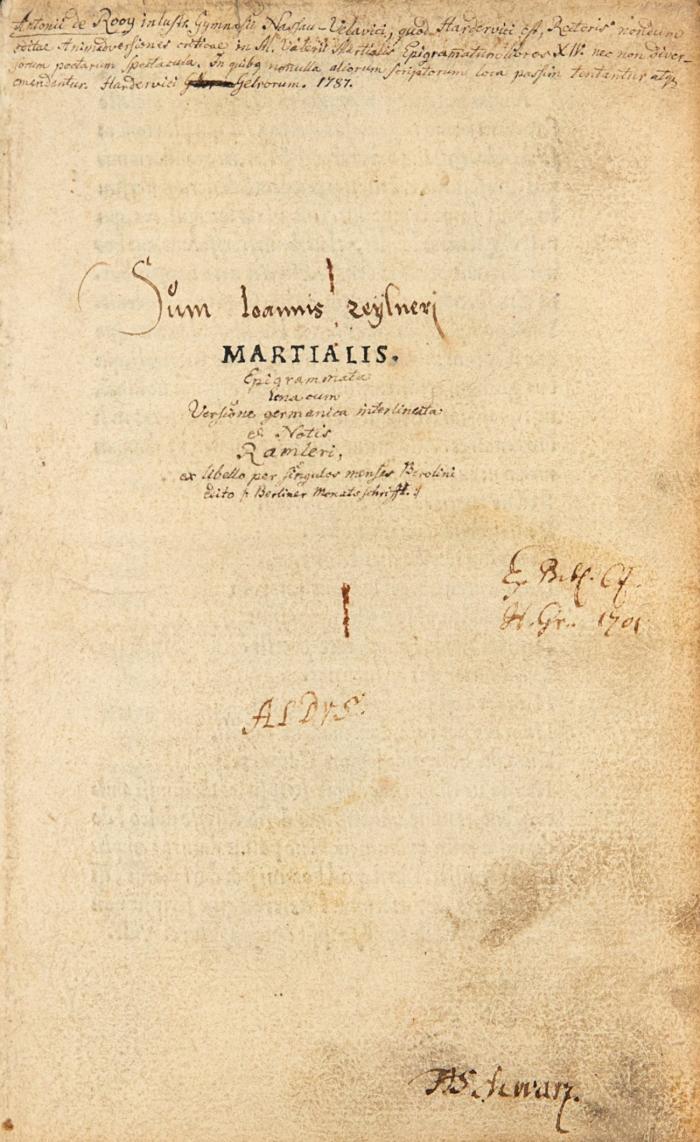 Antonii de Rooy inlustr. Gymnasii Nassau-Velavici, quod Hardervici est, Rectoris nondum
editae Animadversiones criticae in M. Valerii Martialis Epigrammatum libros XIV. nec non diver-
sorum poetarum Spectacula. In quibq nonnulla aliorum scriptorum loca passim tentantur atq
emendantur. Hardervici Gelrorum. 1787.
Sum Ioannis zeylneri
MARTIALIS.
Epigrammata
una cum
Versione germanica interlineata
et Notis
Ramleri,
ex libello per singulos menses Berolini
edito Berliner Monatsschrifft.
Ex Bibl.
H. Gr. 1701
ALDVS
Schwarz.